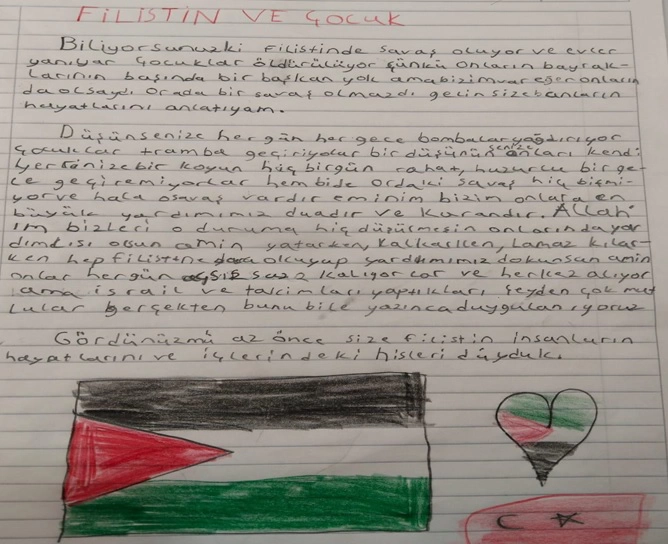 FİLİSTİN VE ÇOCUK
Biliyorsunuzki Filistinde savaş oluyor ve evler
yanıyor çocuklar öldürülüyor çünkü onların bayrak-
larının başında bir başkan yok ama bizim var eğer onların
da olsaydı orada bir savaş olmazdı gelin size bunların
hayatlarını anlatıyam.
Düşünsenize hergün her gece bombalar yağdırıyor
çocuklar tramba geçiriyolar bir düşünün senize anları kendi
yertenize bir koyun hiç birgün rahat, huzurlu bir ge-
ce geçiremiyorlar hem bide ordaki savaş hiç bitmi-
yor ve hala o savaş vardır eminim bizim onlara en
büyük yardımımız duadır ve Kurandır. Allah'
ım bizleri o duruma hiç düşürmesin onlarında yar
dımcısı olsun amin yatarken, kalkarken, namaz kılar-
ken hep filistine dua okuyup yardımımız dokunsun amin
onlar hergün susuz kalıyorlar ve herkez alıyor
ama israil ve takımları yaptıkları şeyden çok mut
lular gerçekten bunu bile yazınca duygulanıyoruz
Gördünüzmü az önce size filistin insanların
hayatlarını ve içlerindeki hisleri duyduk.